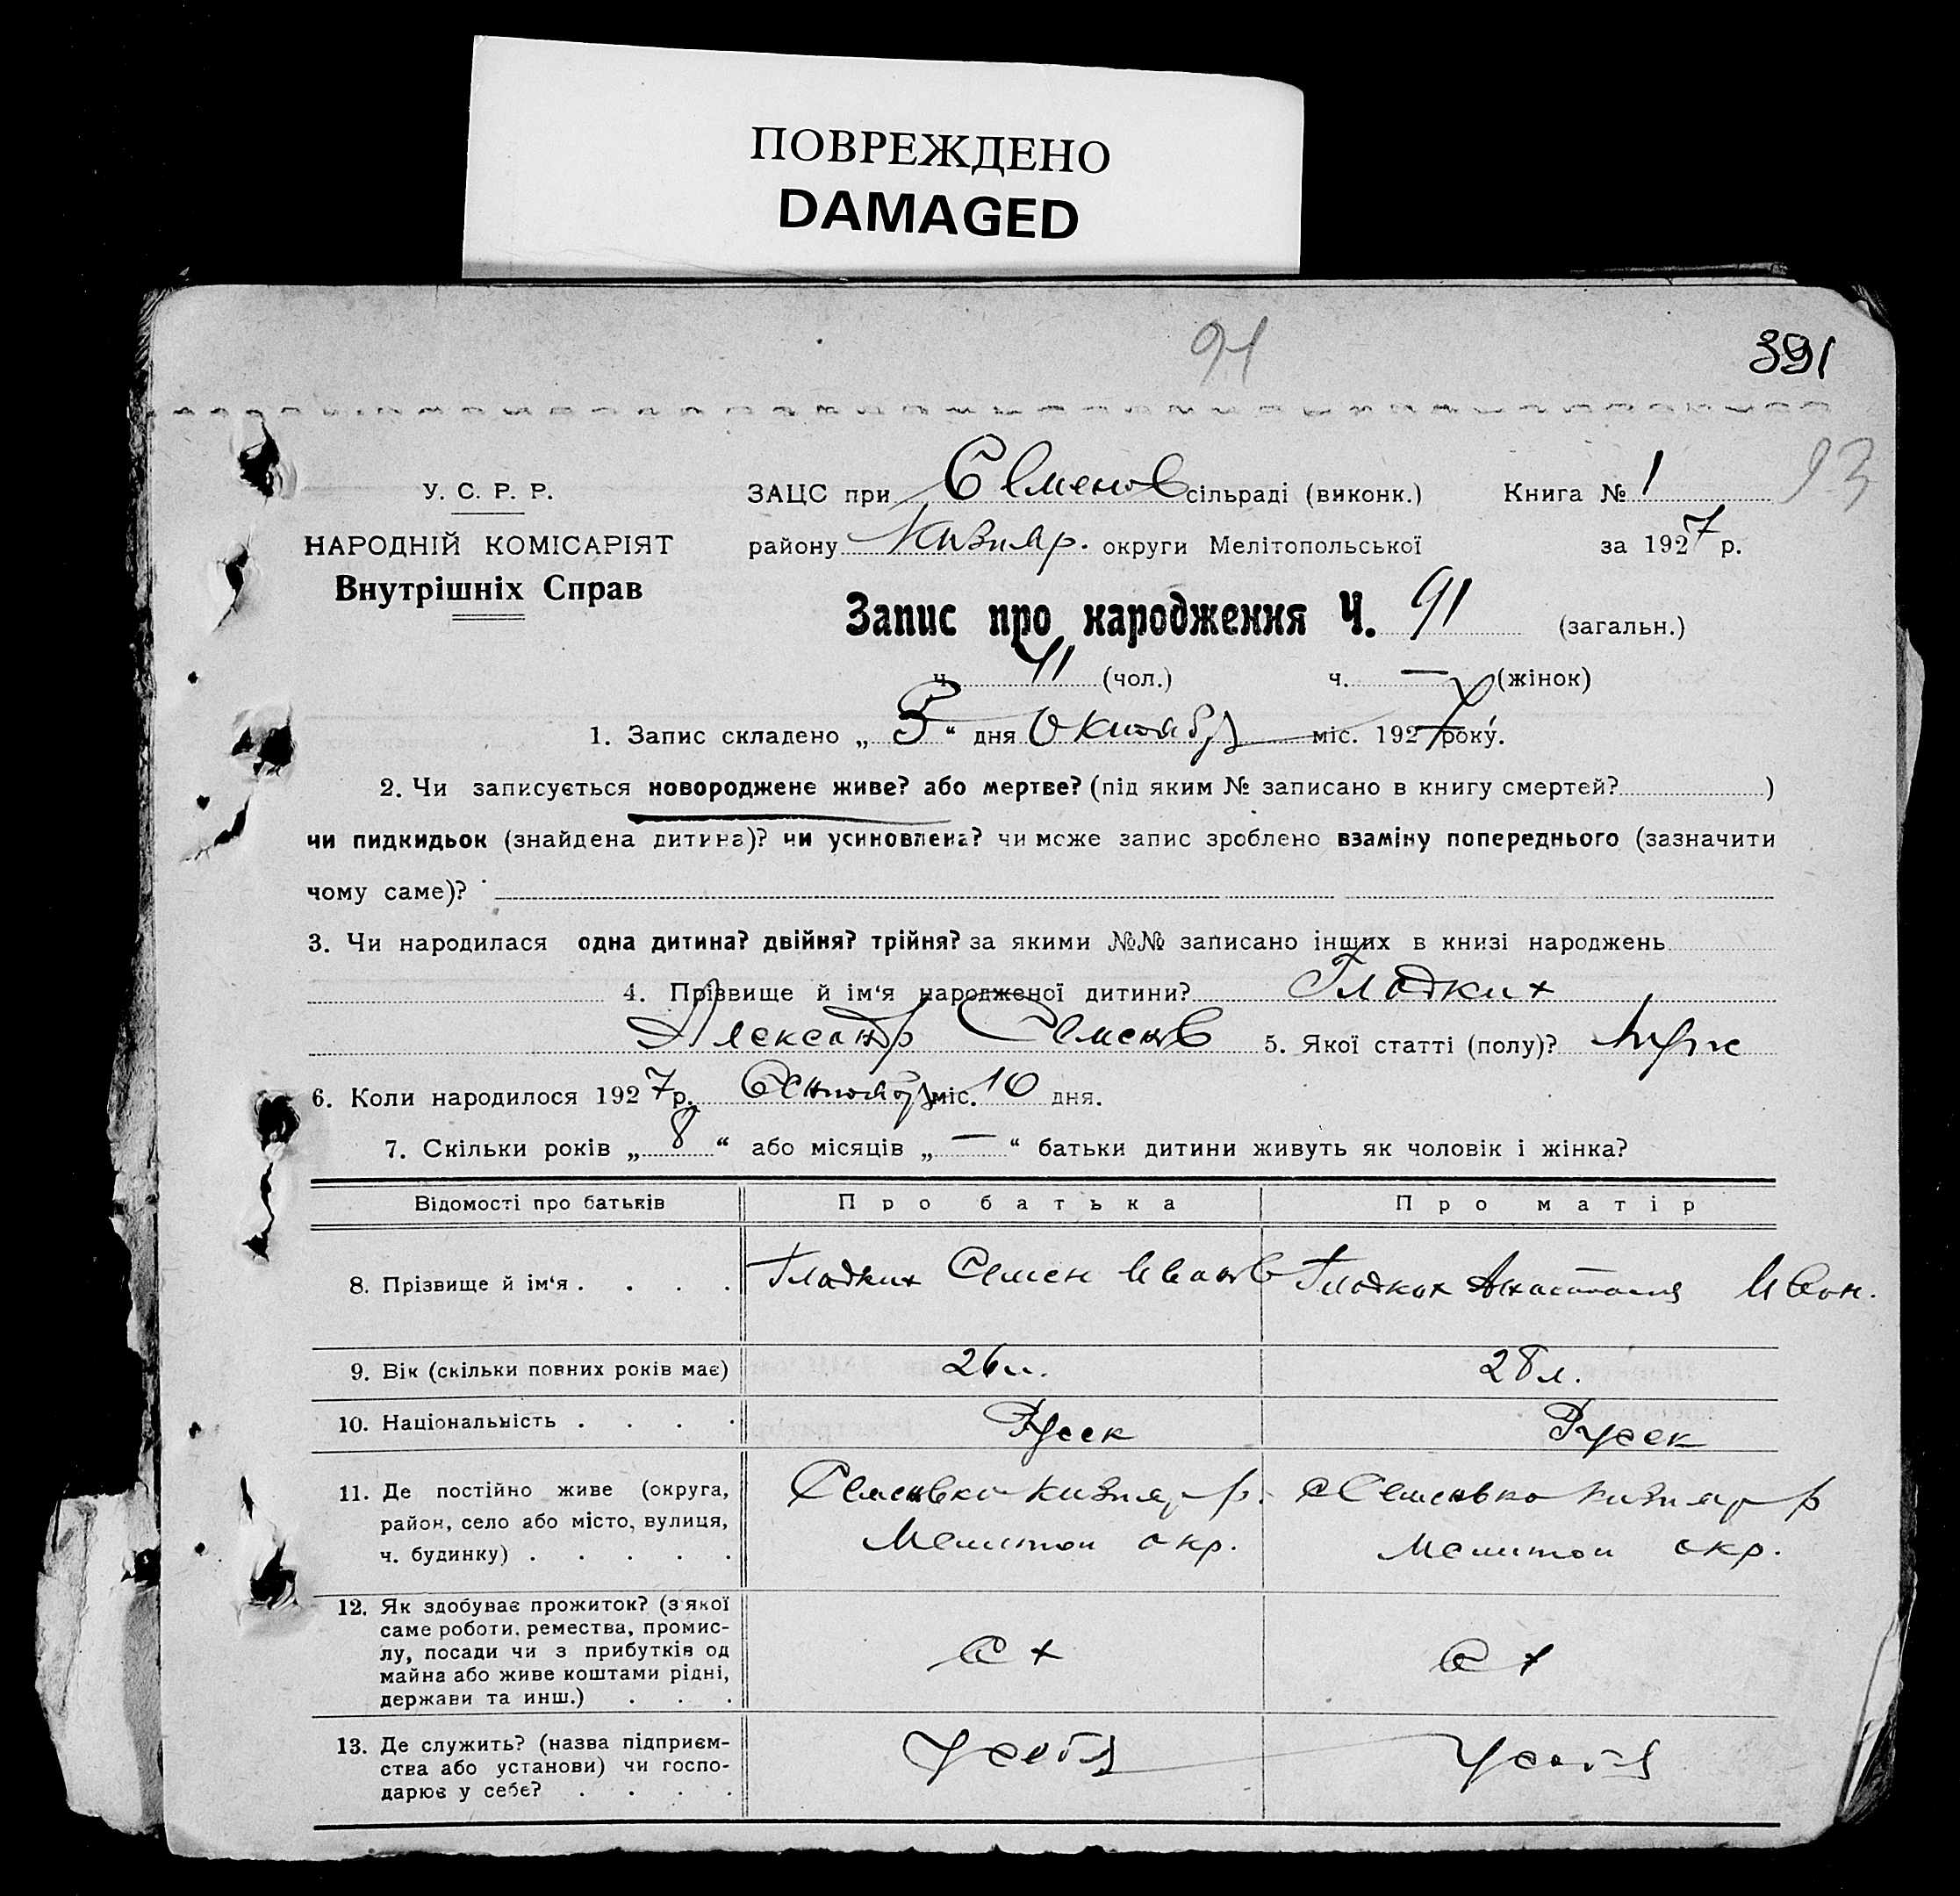 ПОВРЕЖДЕНО
DAMAGED
91
391
93
У. С. Р. Р.
НАРОДНІЙ КОМІСАРІЯТ
Внутрішніх Справ
ЗАЦС при Семенов сільраді (виконк.) Книга № 1
району Кизияр. округи Мелітопольської за 1927 р.
Запис про народження Ч. 91 (загальн.)
ч. 41 (чол.) ч. — (жінок)
1. Запис складено „5“ дня Октября міс. 1927 року.
2. Чи записується новороджене живе? або мертве? (під яким № записано в книгу смертей? )
чи пидкидьок (знайдена дитина)? чи усиновлена? чи може запис зроблено взаміну попереднього (зазначити
чому саме)?
3. Чи народилася одна дитина? двійня? трійня? за якими №№ записано інших в книзі народжень
4. Прізвище й ім‘я народженої дитини? Гладких
Александр Семенов 5. Якої статті (полу)? Муж
6. Коли народилося 1927 р. Сентябр міс. 10 дня.
7. Скільки років „8“ або місяців „—“ батьки дитини живуть як чоловік і жінка?
Відомості про батьків Про батька Про матір
8. Прізвище й ім‘я . . . . Гладких Семен Иванов Гладких Анастасия Иван.
9. Вік (скільки повних років має) 26 л. 28 л.
10. Національність . . . . Русск Русск
11. Де постійно живе (округа, Семеновка Кизияр р. с Семеновка Кизияр р
район, село або місто, вулиця,
ч. будинку) . . . . . Мелитоп окр. Мелитоп окр.
12. Як здобуває прожиток? (з якої
саме роботи, ремества, промис-
лу, посади чи з прибутків од С х С х
майна або живе коштами рідні,
держави та инш.) . . .
13. Де служить? (назва підприєм-
ства або установи) чи госпо- у себя у себя
дарює у себе? . . . .